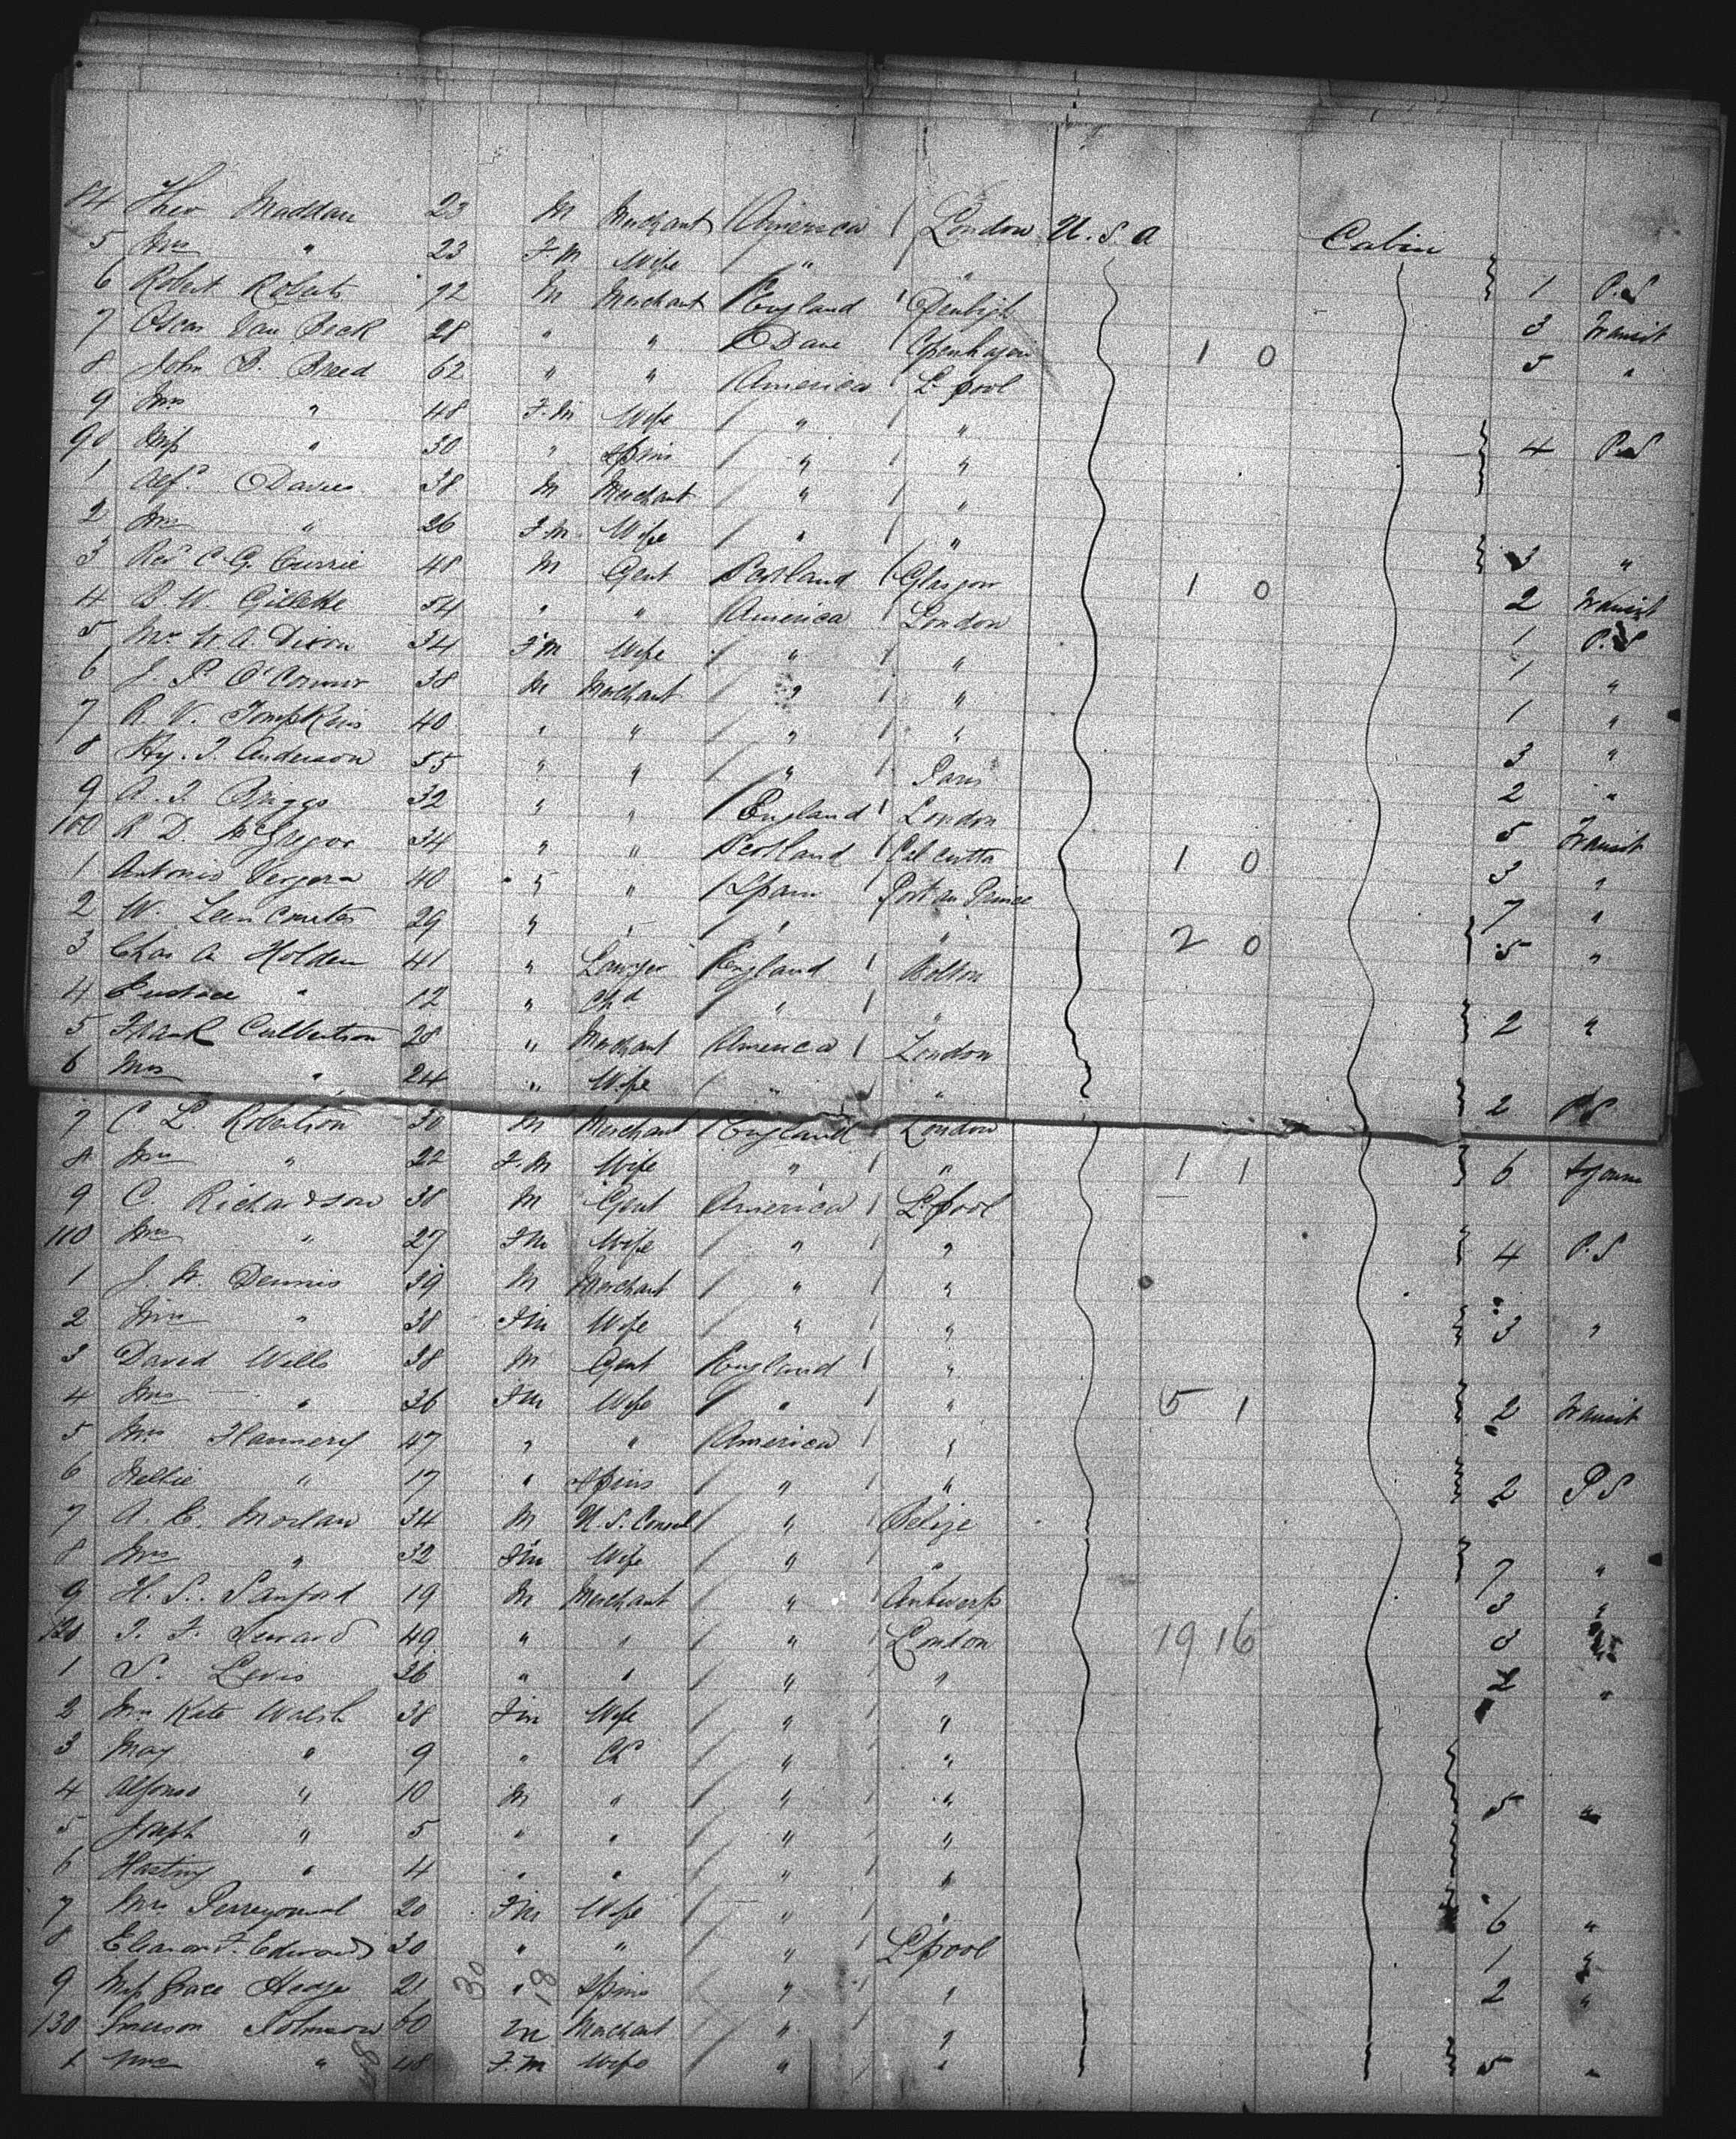 84 Theo Maddan 23 M Merchant America London U.S.A Cabin
5 Mrs " 23 F M Wife " " 1 P.S
6 Robert Roberts 72 M Merchant England Denbigh 3 Transit
7 Oscar Van Beck 28 " " Dane Copenhagen 1 0 5 "
8 John B. Breed 62 " " America L'pool
9 Mrs " 48 F. M Wife " "
90 Miss " 30 " Spins " " 4 P.S
1 Alfd Davies 38 M Merchant " "
2 Mrs " 26 F M Wife " " 3 "
3 Revd C. G. Currie 48 M Gent Scotland Glasgow 1 0 2 Transit
4 D. W. Gillette 54 " " America London 1 P.S
5 Mrs W. A. Dixon 34 F M Wife " " 1 "
6 J. P. O'Connor 38 M Merchant " " 1 "
7 R. V. Tompkins 40 " " " " 3 "
8 Hy. J. Anderson 55 " " " Paris 2 "
9 A. J. Briggs 32 " " England London 5 Transit
100 R D. McGregor 34 " " Scotland Calcutta 1 0 3 "
1 Antonio Vergera 40 " " Spain Port au Prince 7 "
2 W. 29 " " " " 2 0 5 "
3 Chas A Holden 41 " Lawyer England Bolton
4 Eustace " 12 " Chd " " 2 "
5 Frank Culbertson 28 " Merchant America London
6 Mrs " 24 " Wife " " 2 P.S
7 C. L. Robertson 30 M Merchant England London
8 Mrs " 22 F. M Wife " " 1 1 6
9 C. Richardson 38 M Gent America L'pool
110 Mrs " 27 F M Wife " " 4 P.S
1 J. W. Dennis 39 M Merchant " "
2 Mrs " 38 F M Wife " " 3 "
3 David Wells 38 M Gent England "
4 Mrs " 36 F M Wife " " 5 1 2 Transit
5 Mrs Flannery 47 " " America "
6 Nellie " 17 " Spins " " 2 P S
7 A. E. Morlan 34 M U. S. Consul " Belize
8 Mrs " 32 F M Wife " " 7 "
9 H. S. Sanford 19 M Merchant " Antwerp 3 "
120 J. F. Seward 49 " " " London 19 16
1 S. Levis 36 " " " " 2 "
2 Mrs Kate Walsh 38 F M Wife " "
3 May " 9 " Ch " "
4 Alfonso " 10 M " " " 5 "
5 Joseph " 5 " " " "
6 Hasting " 4 " " " "
7 Mrs 20 F M Wife " " 6 "
8 Eleanor F. Edwards 30 " " " L'pool 1 "
9 Miss Grace Hedge 21 30 " 18 Spins " " 2 "
130 Emerson Johnson 60 M Merchant " "
1 Mrs " 48 48 F. M Wife " " 5 "